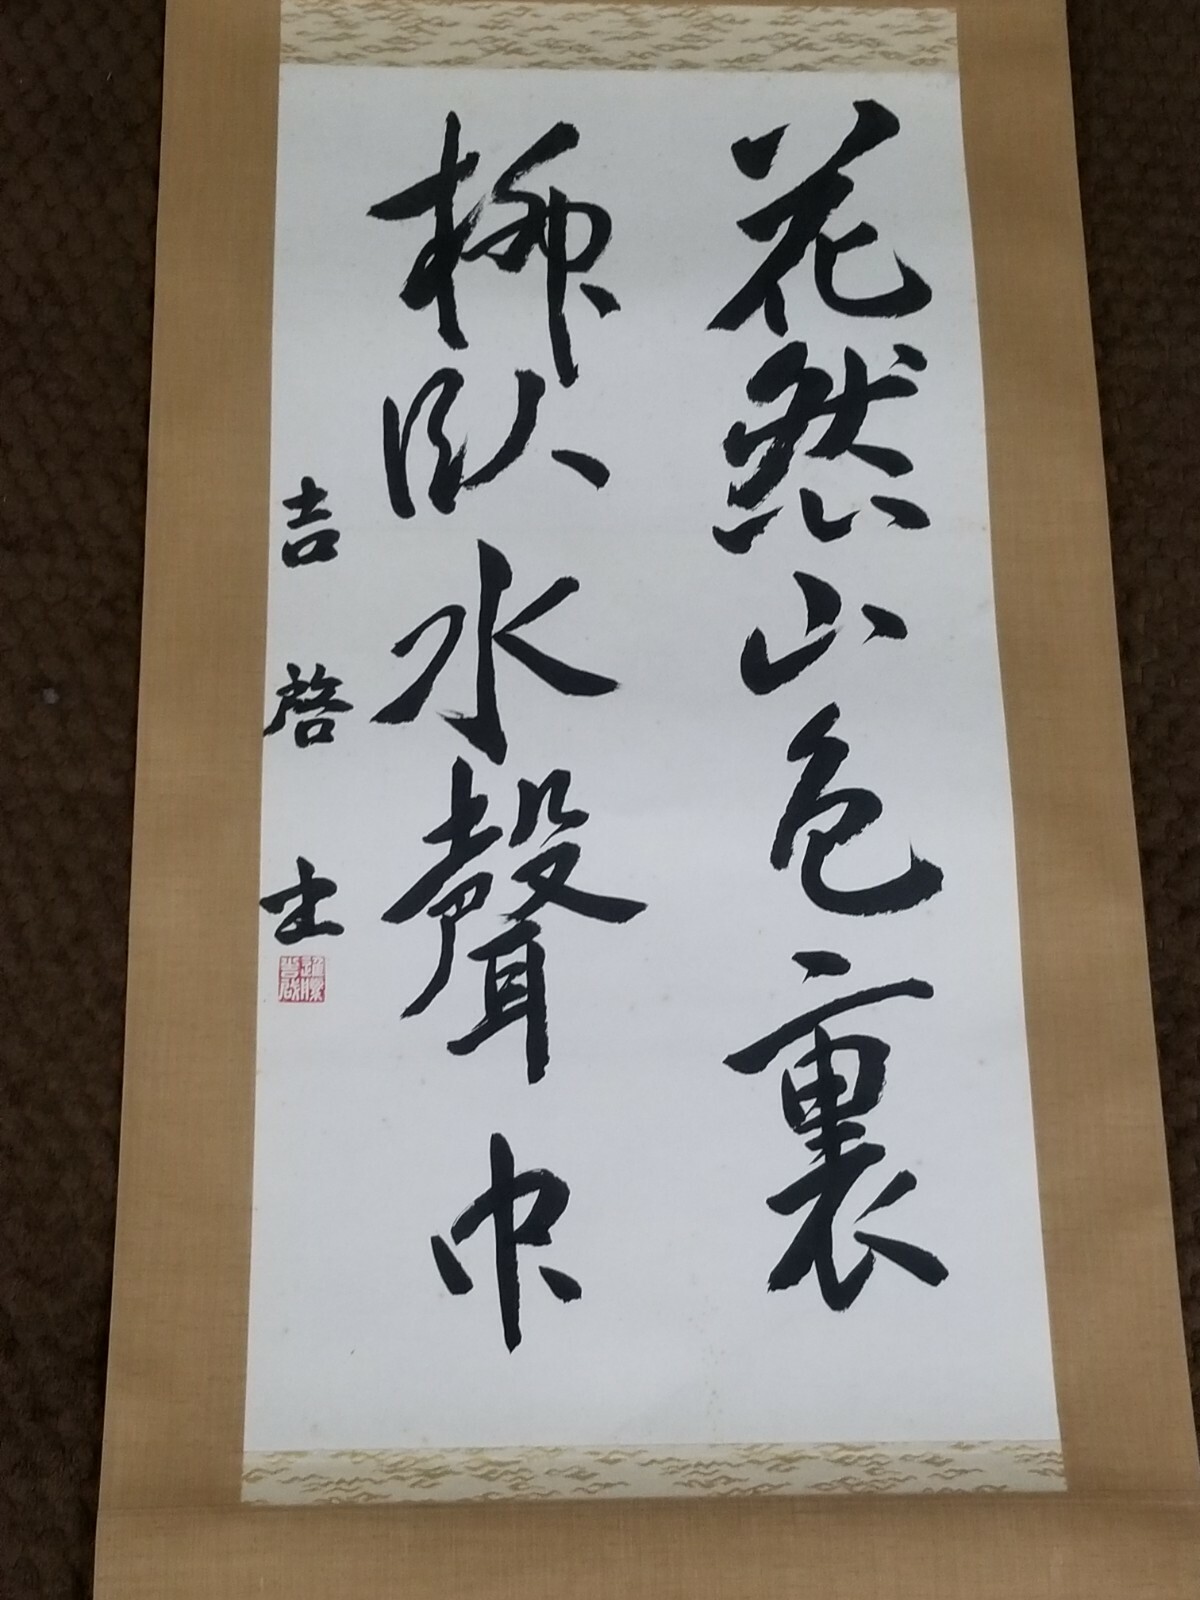 花然山色裏
柳臥水聲中
吉啓士